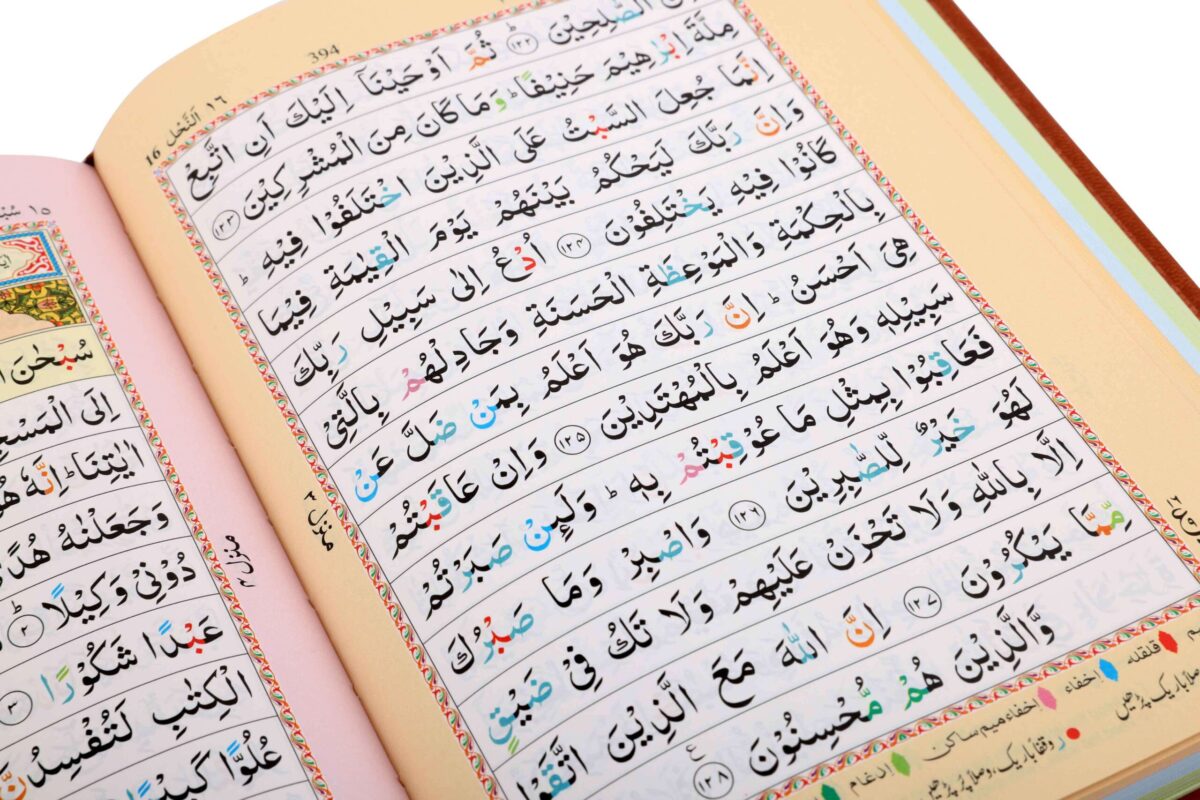 394
16 اَلنَّحْل ١٦
الصّٰلِحِيْنَ ؕ ﴿١٢٢﴾ ثُمَّ اَوْحَيْنَاۤ اِلَيْكَ اَنِ اتَّبِعْ
مِلَّةَ اِبْرٰهِيْمَ حَنِيْفًا ؕ وَمَا كَانَ مِنَ الْمُشْرِكِيْنَ ﴿١٢٣﴾
اِنَّمَا جُعِلَ السَّبْتُ عَلَى الَّذِيْنَ اخْتَلَفُوْا فِيْهِ ؕ
وَاِنَّ رَبَّكَ لَيَحْكُمُ بَيْنَهُمْ يَوْمَ الْقِيٰمَةِ فِيْمَا
كَانُوْا فِيْهِ يَخْتَلِفُوْنَ ﴿١٢٤﴾ اُدْعُ اِلٰى سَبِيْلِ رَبِّكَ
بِالْحِكْمَةِ وَالْمَوْعِظَةِ الْحَسَنَةِ وَجَادِلْهُمْ بِالَّتِيْ
هِيَ اَحْسَنُ ؕ اِنَّ رَبَّكَ هُوَ اَعْلَمُ بِمَنْ ضَلَّ عَنْ
سَبِيْلِهٖ وَهُوَ اَعْلَمُ بِالْمُهْتَدِيْنَ ﴿١٢٥﴾ وَاِنْ عَاقَبْتُمْ
فَعَاقِبُوْا بِمِثْلِ مَا عُوْقِبْتُمْ بِهٖ ؕ وَلَىِٕنْ صَبَرْتُمْ
لَهُوَ خَيْرٌ لِّلصّٰبِرِيْنَ ﴿١٢٦﴾ وَاصْبِرْ وَمَا صَبْرُكَ
اِلَّا بِاللّٰهِ وَلَا تَحْزَنْ عَلَيْهِمْ وَلَا تَكُ فِيْ ضَيْقٍ
مِّمَّا يَمْكُرُوْنَ ﴿١٢٧﴾ اِنَّ اللّٰهَ مَعَ الَّذِيْنَ اتَّقَوْا
وَّالَّذِيْنَ هُمْ مُّحْسِنُوْنَ ﴿١٢٨﴾
ع
منزل ٣
قلقله اخفاء اخفاء میم ساکن ادغام
ر وقفاً باریک، وصلاً پُر پڑھیں
١٥
سُبْحٰنَ
اِلَى الْمَسْجِ
اٰيٰتِنَا ؕ اِنَّهٗ هُ
وَجَعَلْنٰهُ هُدًى
دُوْنِيْ وَكِيْلًا ؕ ﴿٢﴾
عَبْدًا شَكُوْرًا ﴿٣﴾
الْكِتٰبِ لَتُفْسِدُنَّ
عُلُوًّا كَبِيْ
منزل ٤